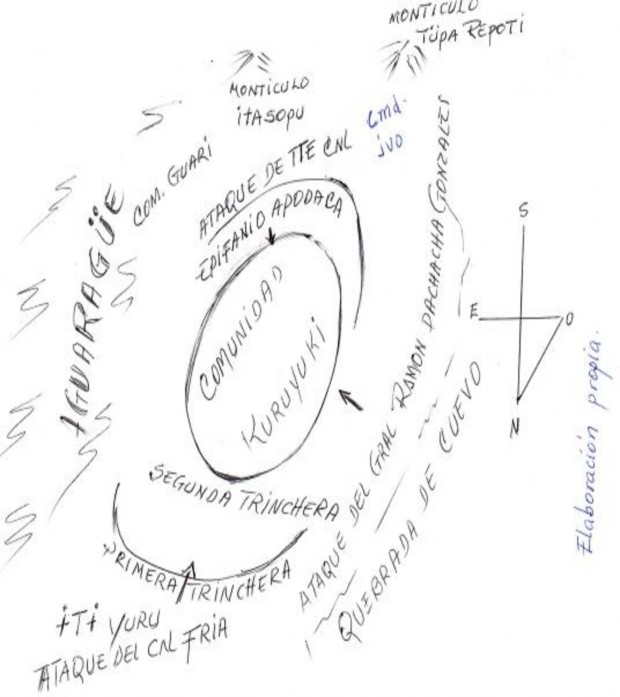 MONTICULO
TÜPA REPOTI
MONTICULO
iTASOPU
COM. GUARI
ATAQUE DE TTE CNL
EPIFANIO APODACA
AGUARAGÜE
COMUNIDAD
KURUYUKI
SEGUNDA TRINCHERA
PRIMERA TRINCHERA
iTi YURU
ATAQUE DEL CNL FRIA
ATAQUE DEL GRAL RAMON PACHACHA GONZALES
QUEBRADA DE CUEVO
S
E
O
N
Elaboración propia.